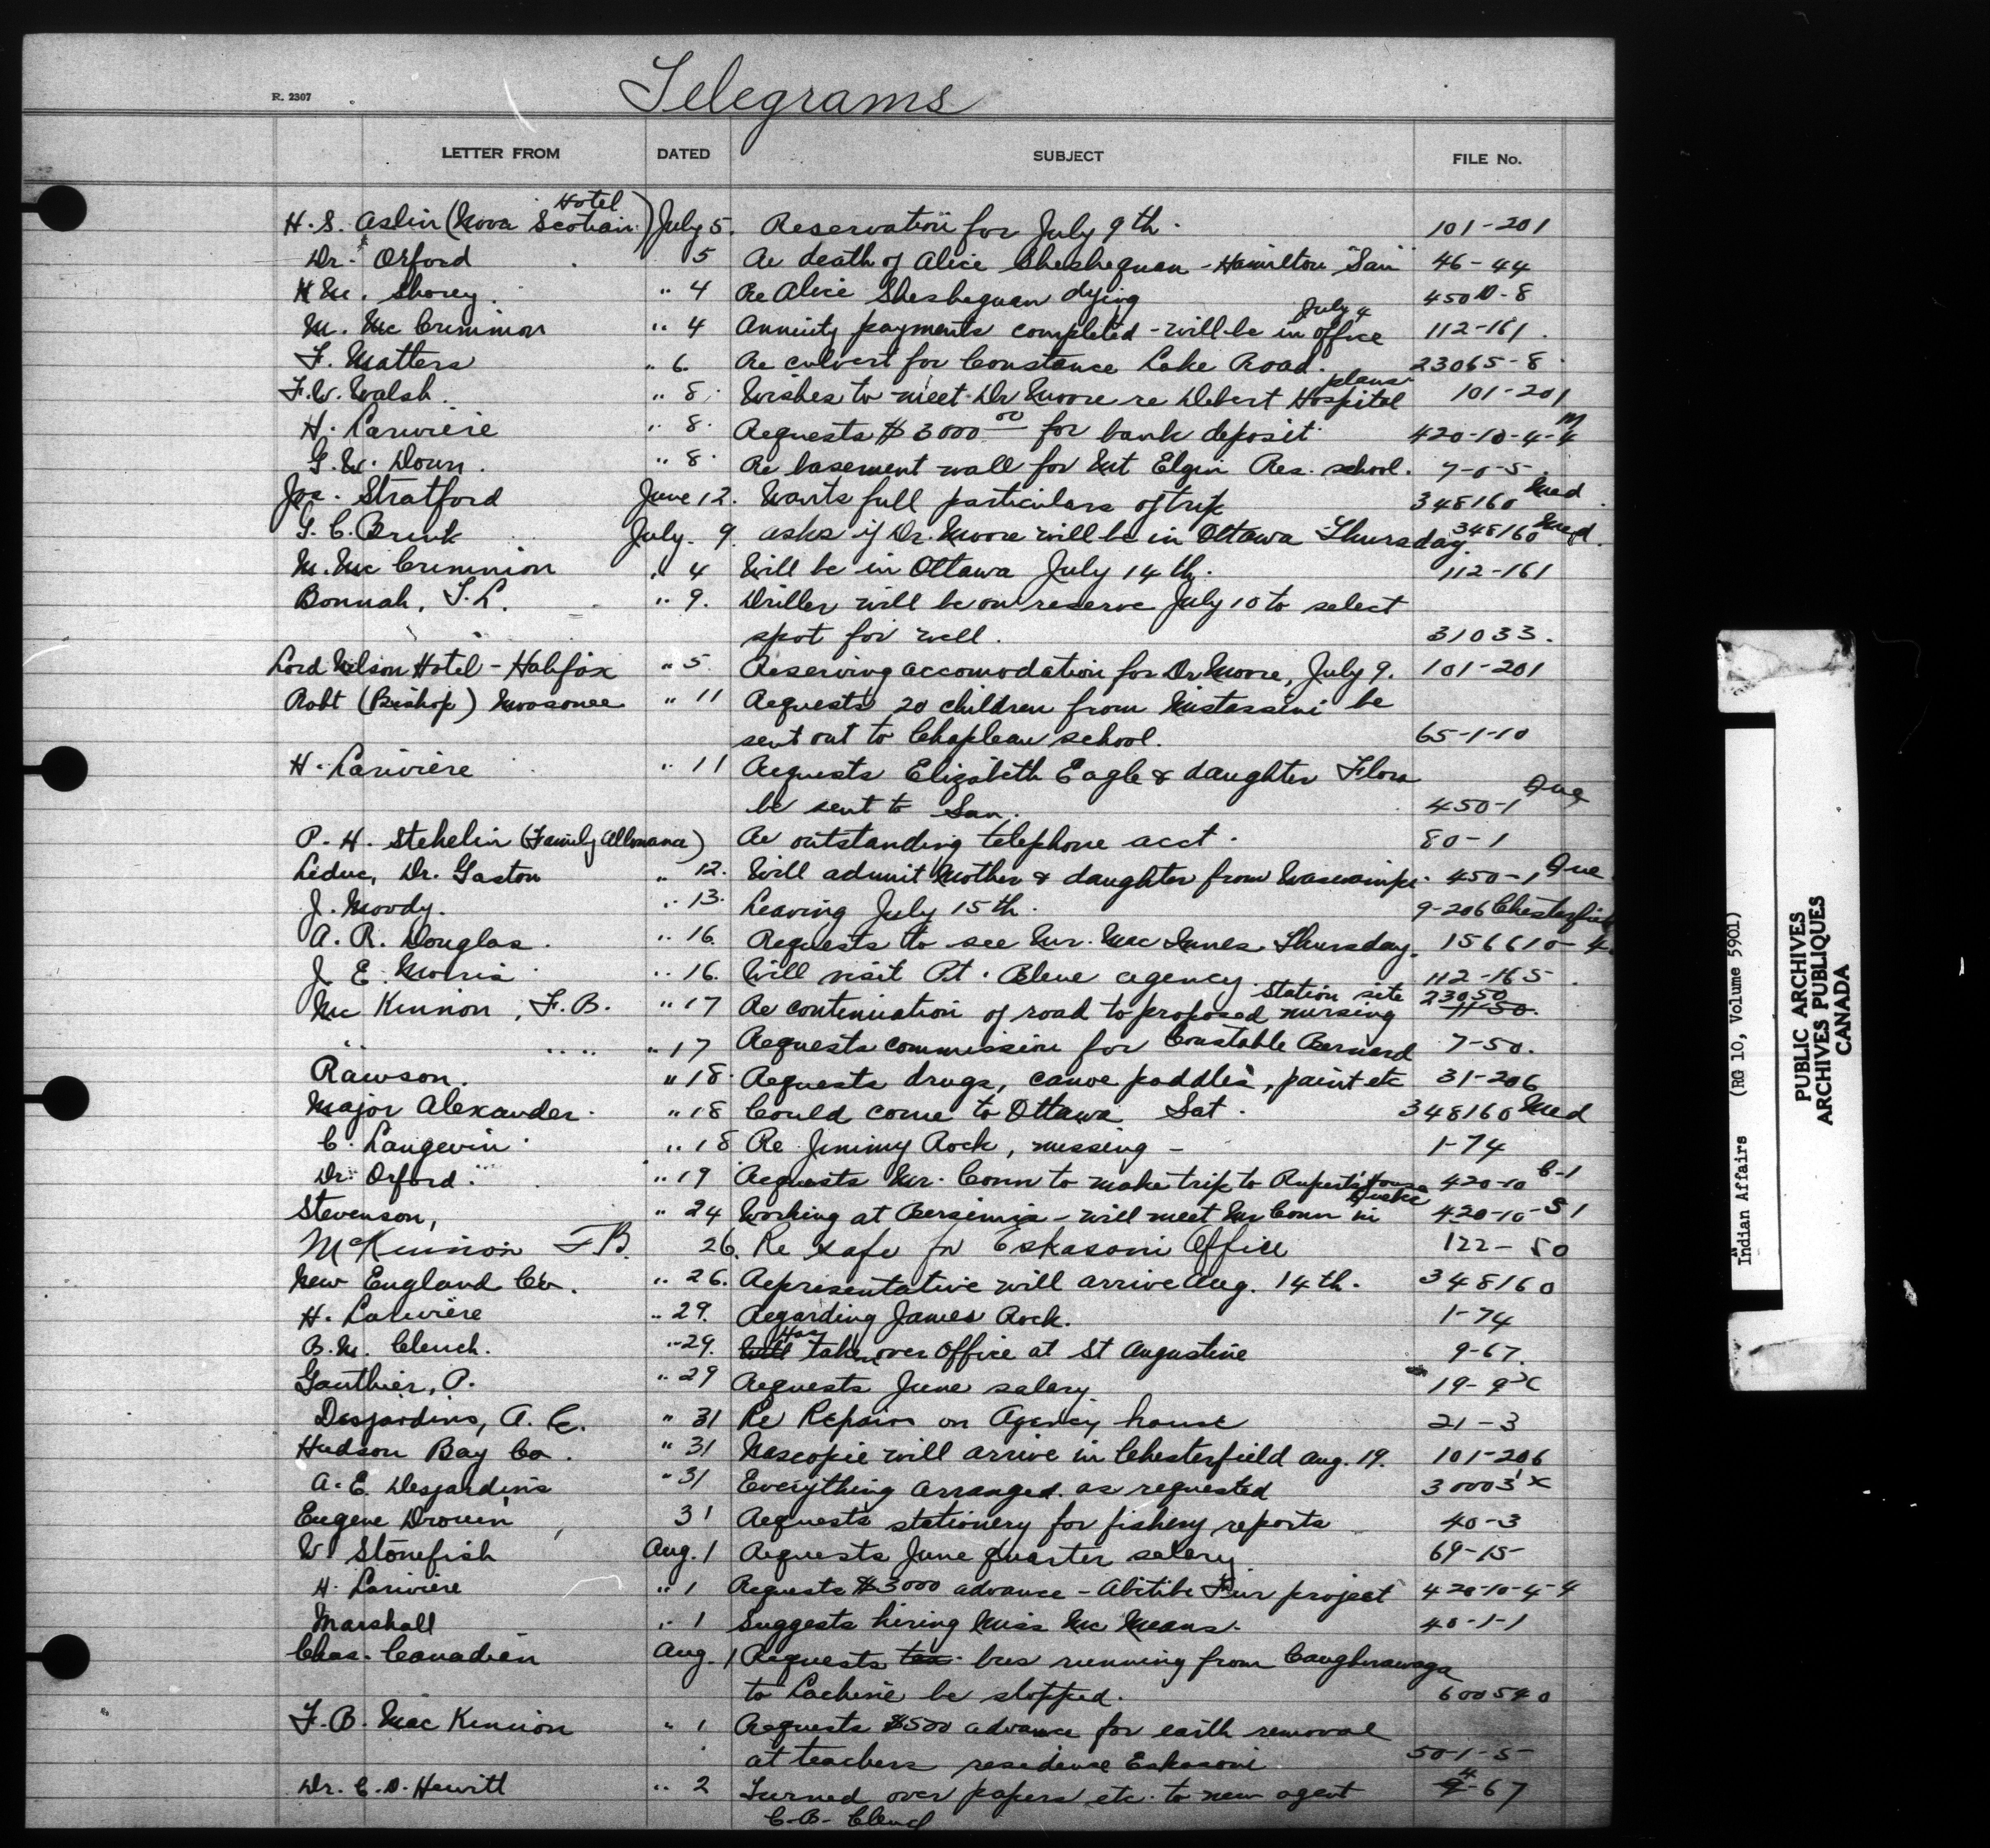 Telegrams
R. 2307
LETTER FROM DATED SUBJECT FILE No.
H. S. Aslin (Nova Scotian Hotel) July 5. Reservation for July 9th. 101-201
Dr. Orford 5 Re death of Alice Sheshequan - Hamilton San 46-44
H M. Shorey. " 4 Re Alice Sheshequan dying 450 D-8
M. McCrimmon " 4 Annuity payments completed - will be in office July 4 112-161.
F. Matters " 6. Re culvert for Constance Lake Road. 23065-8
F.W. Walsh. " 8. Wishes to meet Dr Moore re Debert Hospital plans 101-201
H. Lariviere " 8. Requests $3000 00 for bank deposit 420-10-4-4 M
G.W. Down. " 8. Re basement wall for Mt Elgin Res. school. 7-0-5.
Jos. Stratford June 12. Wants full particulars of trip 348160 Med.
G. C. Brink July. 9. asks if Dr. Moore will be in Ottawa Thursday. 348160 Med.
M. McCrimmon " 4 Will be in Ottawa July 14th. 112-161
Bonnah, T. L. " 9. Driller will be on reserve July 10 to select
spot for well. 31033.
Lord Nelson Hotel - Halifax " 5. Reserving accomodation for Dr Moore, July 9. 101-201
Robt (Bishop) Moosonee " 11 Requests 20 children from Mistassini be
sent out to Chapleau school. 65-1-10
H. Lariviere " 11 Requests Elizabeth Eagle & daughter Flora
be sent to San. 450-1 Que
P. H. Stehelin (Family Allowance) Re outstanding telephone acct. 80-1
Leduc, Dr. Gaston " 12. Will admit Mother & daughter from Waswanipi. 450-1 Que
J. Moody. " 13. Leaving July 15th. 9-206 Chesterfield
A. R. Douglas. " 16. Requests to see Mr. MacInnes Thursday. 156610-4
J. E. Morris " 16. Will visit Pt. Bleue agency 112-165.
McKinnon, F.B. " 17 Re continuation of road to proposed nursing Station site 23050 11-50.
" " " " 17 Requests commission for Constable Bernard 7-50.
Rawson. " 18. Requests drugs, canoe paddles, paint etc 31-206
Major Alexander. " 18 Could come to Ottawa Sat. 348160 Med
C. Langevin " 18 Re Jimmy Rock, missing - 1-74
Dr. Orford. " 19 Requests Mr. Conn to make trip to Ruperts House 420-10 C-1
Stevenson, " 24 Working at Bersimis - will meet Mr Conn in Quebec 420-10-S1
McKinnon F B. 26. Re Safe for Eskasoni Office 122-50
New England Co. " 26. Representative will arrive Aug. 14th. 348160
H. Lariviere " 29. Regarding James Rock. 1-74
B.M. Clench. " 29. Will Has taken over Office at St Augustine 9-67.
Gauthier, P. " 29 Requests June salary. 19-9
Desjardins, A. E. " 31 Re Repairs on Agency house 21-3
Hudson Bay Co. " 31 Nascopie will arrive in Chesterfield Aug. 19. 101-206
A. E. Desjardins " 31 Everything arranged as requested 30003'x
Eugene Drouin 31 Requests stationery for fishery reports 40-3
W. Stonefish Aug. 1 Requests June quarter salary 69-15
H. Lariviere " 1 Requests $3000 advance - Abitibi Fur project 420-10-4-4
Marshall " 1 Suggests hiring Miss McMeans. 40-1-1
Chas. Canadien Aug. 1 Requests tax bus running from Caughnawaga
to Lachine be stopped. 600540
F.B. MacKinnon " 1 Requests $500 advance for earth removal
at teachers residence Eskasoni. 50-1-5
Dr. C. D. Hewitt " 2 Turned over papers etc. to new agent 9-67
C.B. Clench
Indian Affairs (RG 10, Volume 5901)
PUBLIC ARCHIVES
ARCHIVES PUBLIQUES
CANADA